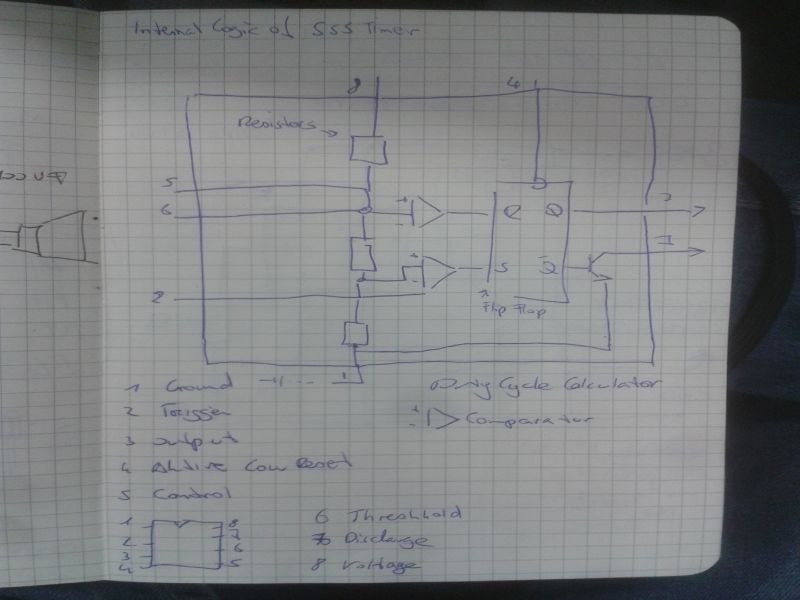 Internal Logic of 555 Timer
8
4
Resistors
5
6
+
-
R
Q
3
7
+
-
S
Q
2
Flip Flop
1
1 Ground
Duty Cycle Calculator
2 Trigger
+
-
Comparator
3 Output
4 Aktive Low Reset
5 Control
1
2
3
4
8
7
6
5
6 Threshhold
7 Discharge
8 Voltage